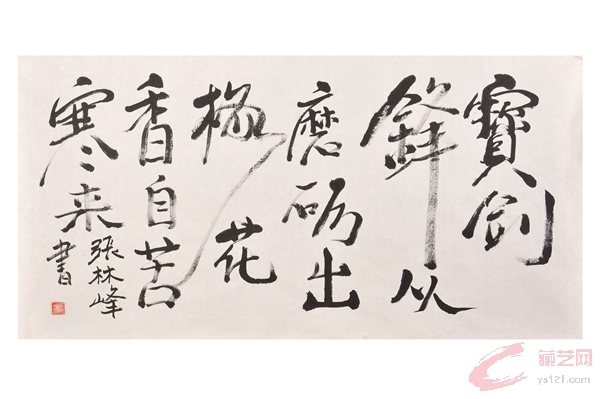 寶剑
鋒从
磨砺出
梅花
香自苦
寒来
張林峰
書
藏艺网
ys121.com